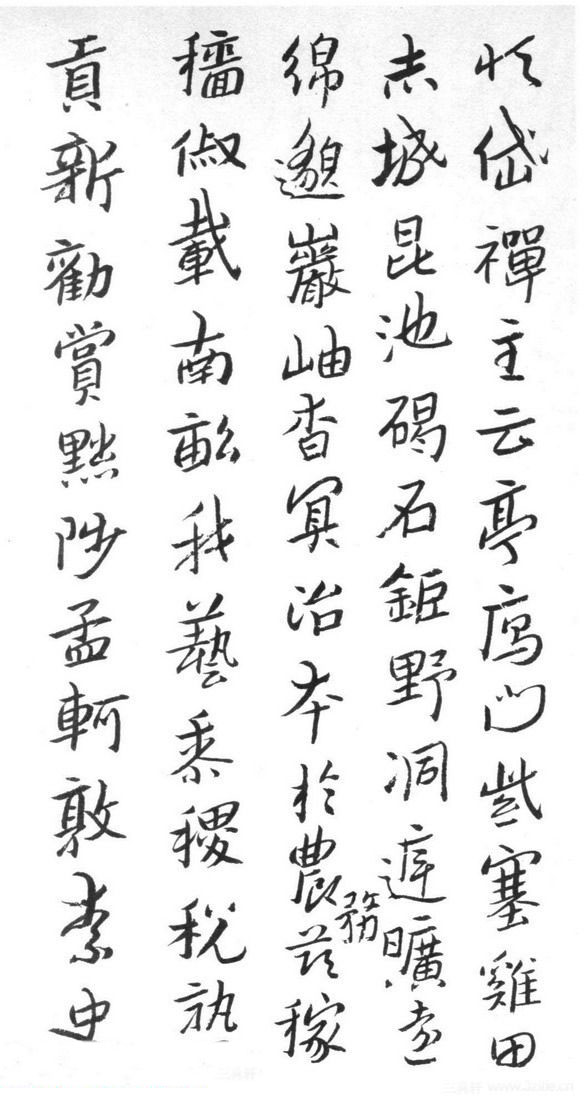 恒岱禪主云亭鴈门紫塞雞田
赤城昆池碣石鉅野洞庭曠遠
綿邈巖岫杳冥治本於農務茲稼
穡俶載南畝我藝黍稷稅熟
貢新勸賞黜陟孟軻敦素史